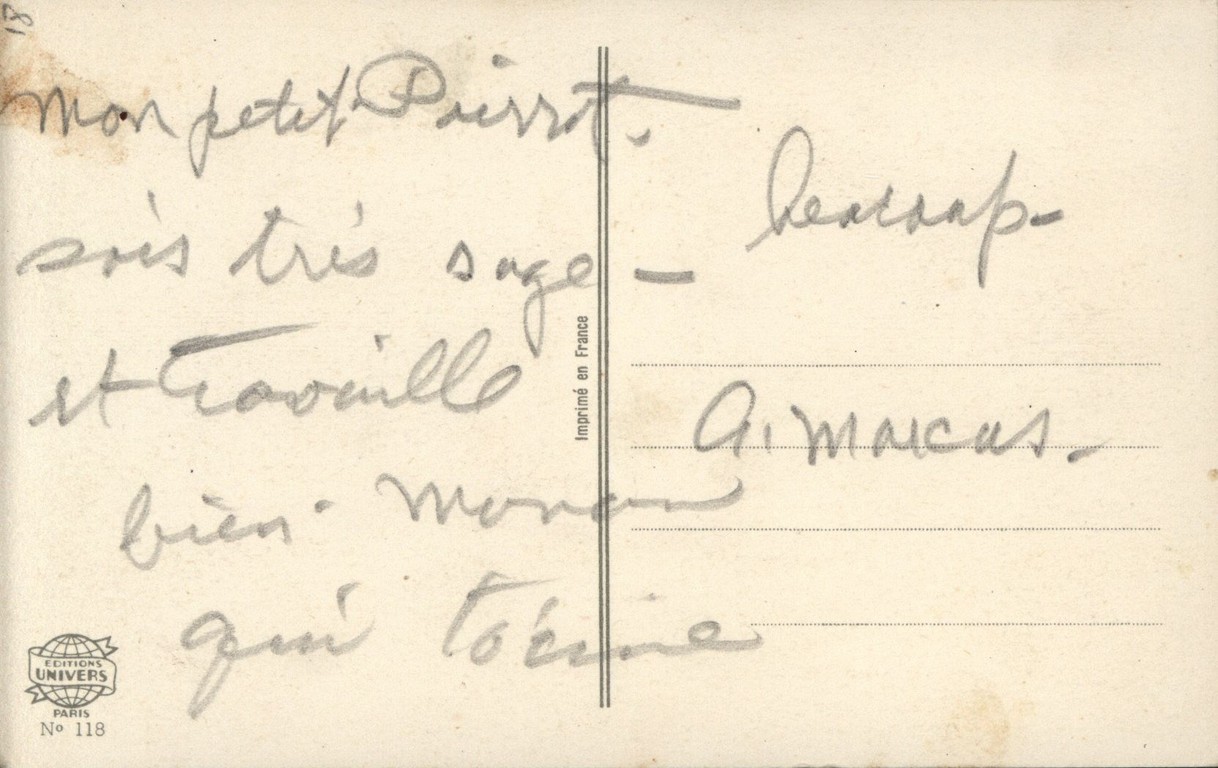 18
mon petit Pierrot.
sois très sage –
et travaille
bien. Maman
qui t'aime
beaucoup –
A. Marcus.
Imprimé en France
EDITIONS
UNIVERS
PARIS
No 118